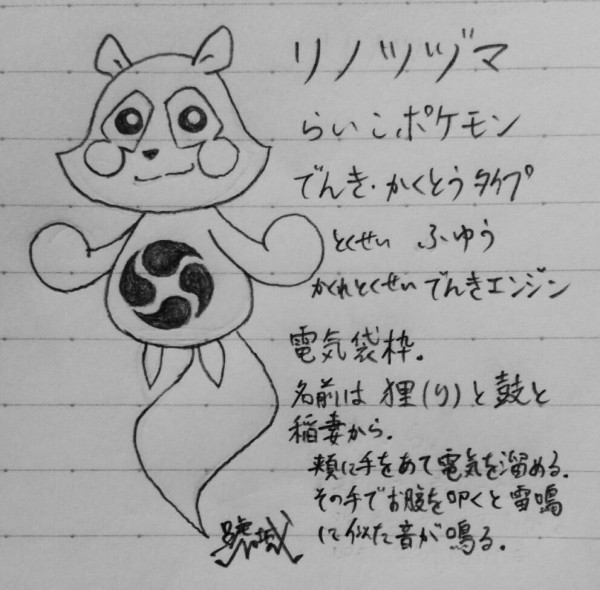 リノツヅマ
らいこポケモン
でんき・かくとうタイプ
とくせい ふゆう
かくれとくせい でんきエンジン
電気袋枠。
名前は 狸(り)と鼓と
稲妻から.
頬に手をあて電気を溜める.
その手でお腹を叩くと雷鳴
に似た音が鳴る.